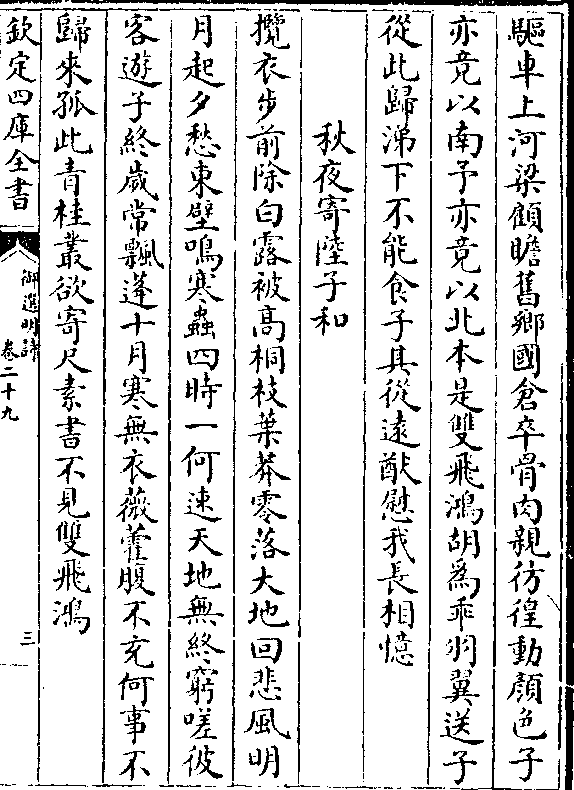 驅車上河梁顧瞻舊鄉國倉卒骨肉親彷徨動顏色子
亦竟以南予亦竟以北本是雙飛鴻胡爲乖羽翼送子
從此歸涕下不能食子其從遠猷慰我長相憶
秋夜寄陸子和
攬衣步前除白露被高桐枝葉莽零落大地回悲風明
月起夕愁東壁鳴寒蟲四時一何速天地無終窮嗟彼
客遊子終歲常飄蓬十月寒無衣薇藿腹不充何事不
歸來孤此青桂叢欲寄尺素書不見雙飛鴻
欽定四庫全書
御選明詩
卷二十九
三